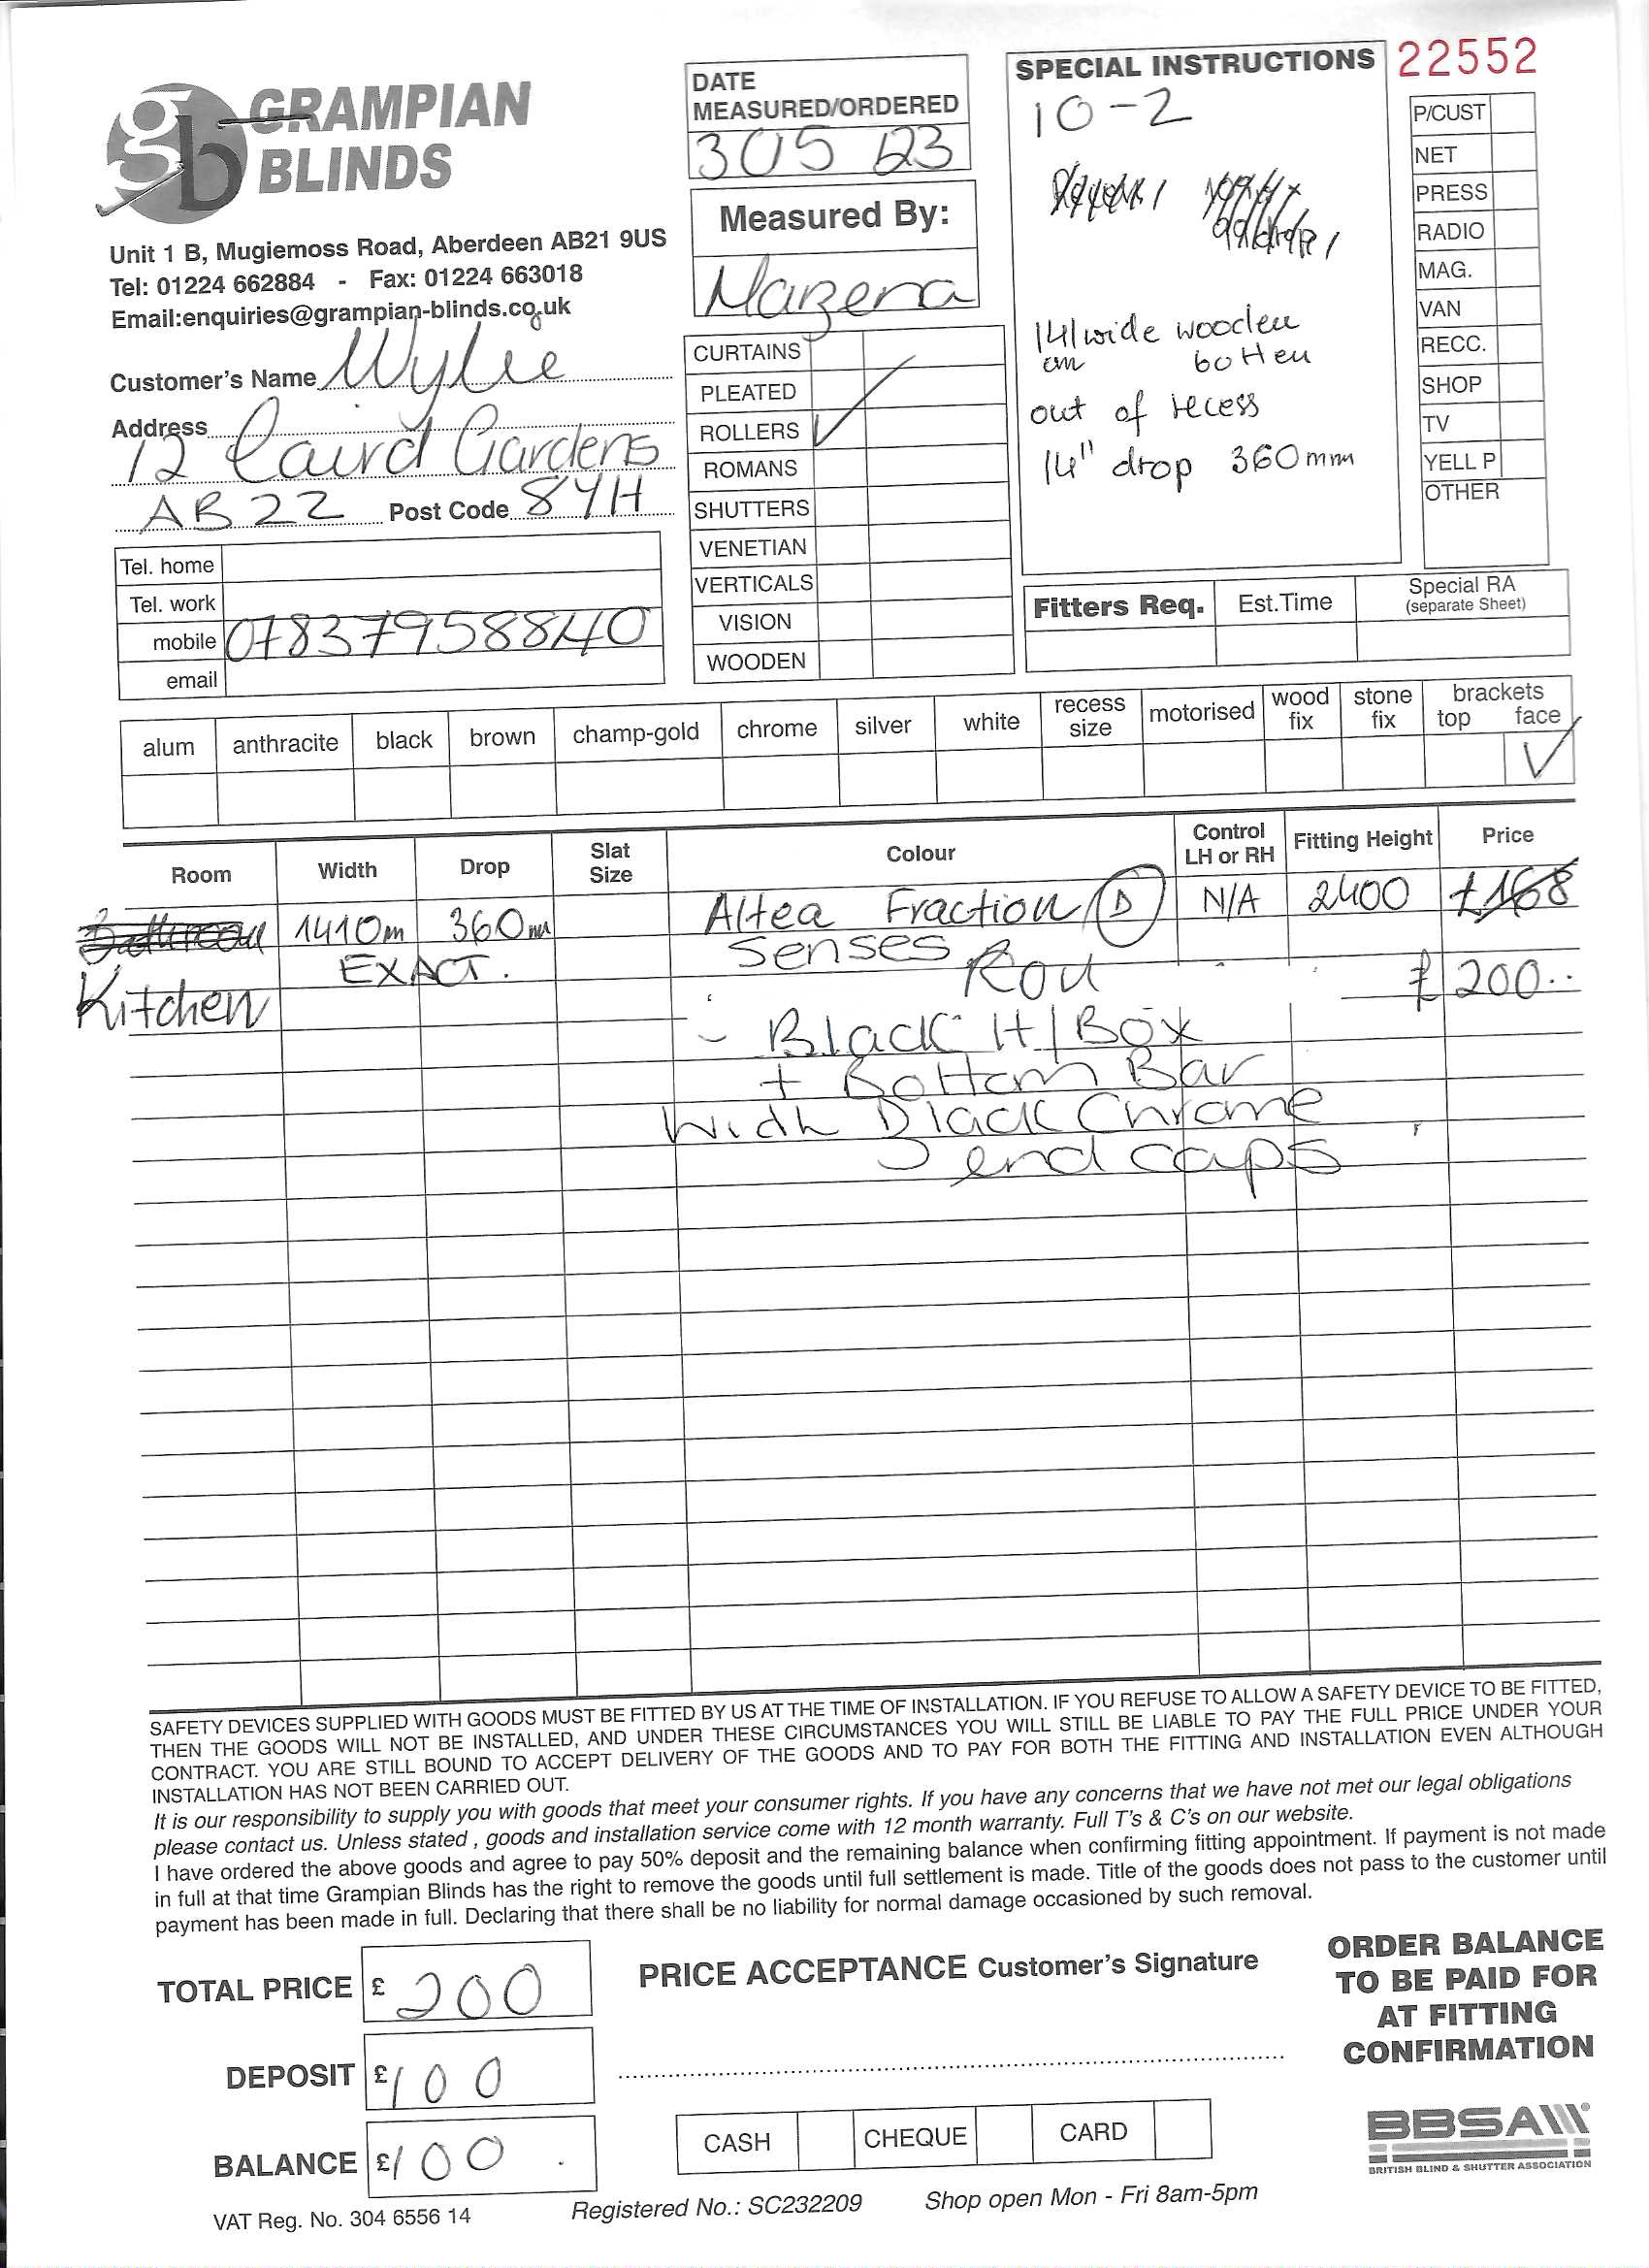 GRAMPIAN
BLINDS
gb
Unit 1 B, Mugiemoss Road, Aberdeen AB21 9US
Tel: 01224 662884 - Fax: 01224 663018
Email:enquiries@grampian-blinds.co.uk
Customer's Name Wylie
Address
12 Caird Gardens
AB22 Post Code 8YH
Tel. home
Tel. work
mobile 07837958840
email
DATE
MEASURED/ORDERED
305 23
Measured By:
Marzena
CURTAINS
PLEATED
ROLLERS ✓
ROMANS
SHUTTERS
VENETIAN
VERTICALS
VISION
WOODEN
SPECIAL INSTRUCTIONS
10-2
141 wide wooden
cm botten
out of recess
14" drop 360mm
22552
P/CUST
NET
PRESS
RADIO
MAG.
VAN
RECC.
SHOP
TV
YELL P
OTHER
Fitters Req. Est.Time Special RA
(separate Sheet)
alum anthracite black brown champ-gold chrome silver white recess size motorised wood fix stone fix brackets top face
✓
Room Width Drop Slat Size Colour Control LH or RH Fitting Height Price
Bathroom 1410m 360m Altea Fraction D N/A 2400 £168
EXACT. senses
Kitchen Roll £200..
- Black H/Box
+ Bottom Bar
With Black Chrome
end caps
SAFETY DEVICES SUPPLIED WITH GOODS MUST BE FITTED BY US AT THE TIME OF INSTALLATION. IF YOU REFUSE TO ALLOW A SAFETY DEVICE TO BE FITTED,
THEN THE GOODS WILL NOT BE INSTALLED, AND UNDER THESE CIRCUMSTANCES YOU WILL STILL BE LIABLE TO PAY THE FULL PRICE UNDER YOUR
CONTRACT. YOU ARE STILL BOUND TO ACCEPT DELIVERY OF THE GOODS AND TO PAY FOR BOTH THE FITTING AND INSTALLATION EVEN ALTHOUGH
INSTALLATION HAS NOT BEEN CARRIED OUT.
It is our responsibility to supply you with goods that meet your consumer rights. If you have any concerns that we have not met our legal obligations
please contact us. Unless stated , goods and installation service come with 12 month warranty. Full T's & C's on our website.
I have ordered the above goods and agree to pay 50% deposit and the remaining balance when confirming fitting appointment. If payment is not made
in full at that time Grampian Blinds has the right to remove the goods until full settlement is made. Title of the goods does not pass to the customer until
payment has been made in full. Declaring that there shall be no liability for normal damage occasioned by such removal.
TOTAL PRICE £ 200
DEPOSIT £100
BALANCE £100.
PRICE ACCEPTANCE Customer's Signature
CASH CHEQUE CARD
ORDER BALANCE
TO BE PAID FOR
AT FITTING
CONFIRMATION
BBSA
BRITISH BLIND & SHUTTER ASSOCIATION
VAT Reg. No. 304 6556 14 Registered No.: SC232209 Shop open Mon - Fri 8am-5pm